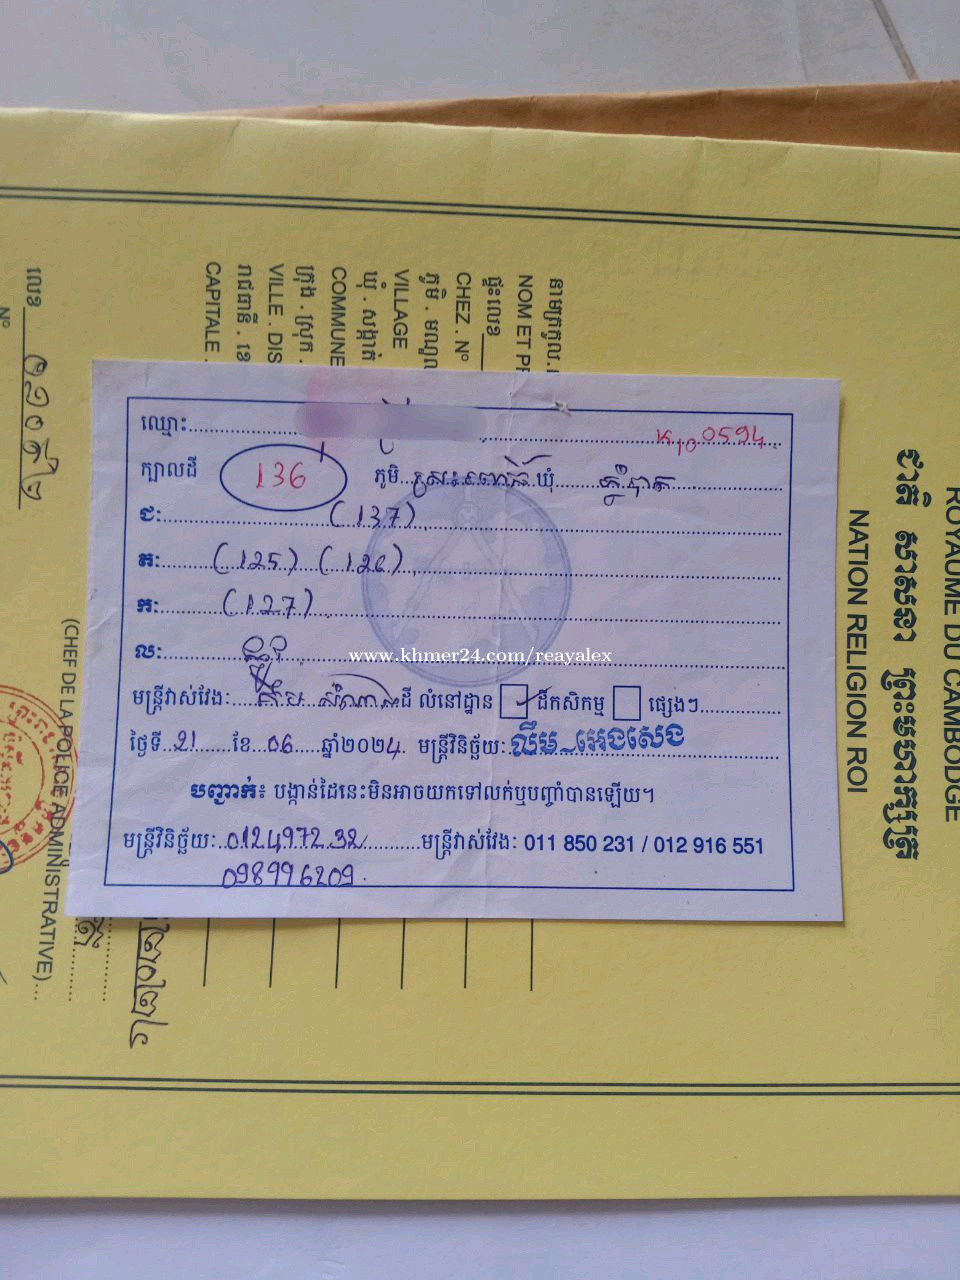 ឈ្មោះ
K10 0594
ក្បាលដី 136 ភូមិ ឃុំ
ជ: (137)
ត: (125) (126)
ក: (127)
ល: ផ្លូវ
មន្ត្រីវាស់វែង: ដី លំនៅដ្ឋាន ដីកសិកម្ម ផ្សេងៗ
ថ្ងៃទី 21 ខែ 06 ឆ្នាំ២០២4 មន្ត្រីវិនិច្ឆ័យ: លឹម អេងសេង
បញ្ជាក់៖ បង្កាន់ដៃនេះមិនអាចយកទៅលក់ឬបញ្ចាំបានឡើយ។
មន្ត្រីវិនិច្ឆ័យ: 0124972 32 មន្ត្រីវាស់វែង: 011 850 231 / 012 916 551
098996209
www.khmer24.com/reayalex
ROYAUME DU CAMBODGE
ជាតិ សាសនា ព្រះមហាក្សត្រ
NATION RELIGION ROI
នាមត្រកូល
NOM ET PR
ផ្ទះលេខ
CHEZ . Nº
ភូមិ . មណ្ឌល
VILLAGE
ឃុំ . សង្កាត់
COMMUNE
ក្រុង . ស្រុក .
VILLE . DIS
រាជធានី . ខេ
CAPITALE .
(CHEF DE LA POLICE ADMINISTRATIVE)
លេខ
Nº